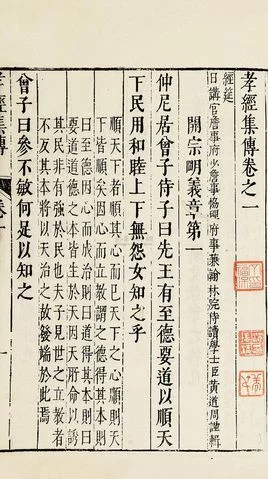 孝經集傳卷之一
經筵
日講官詹事府少詹事協理府事兼翰林院侍讀學士臣黃道周謹輯
開宗明義章第一
仲尼居曾子侍子曰先王有至德要道以順天
下民用和睦上下無怨女知之乎
順天下者順其心而已天下之心順則天
下皆順矣因心而立教謂之德得其本則
曰至德因心而成治則曰道得其本則曰
要道道德之本皆生於天因天所命以誘
其民非有強於民也夫子見世之立教者
不反其本將以天治之故發端於此焉
曾子曰參不敏何足以知之
孝經集傳 卷一